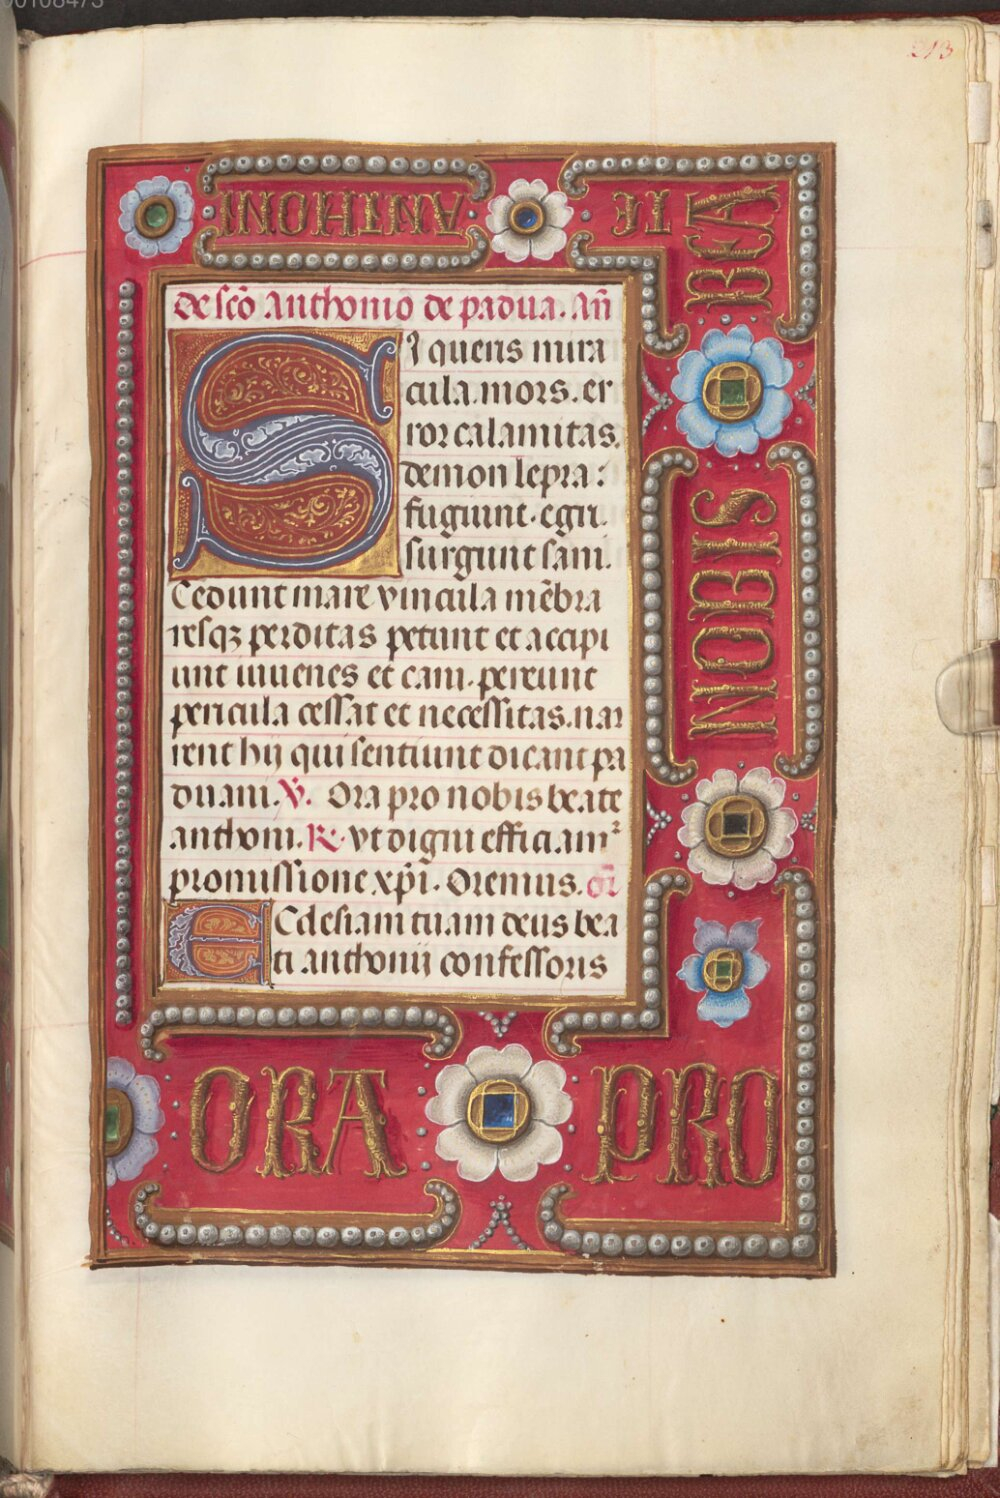 213
de scō anthonio de padua. añ
Si queris mira
cula. mors. er
ror calamitas.
demon lepra:
fugiunt. egri.
surgunt sani.
Cedunt mare vincula mēbra
resqz perditas petunt et accipi
unt iuuenes et cani. pereunt
pericula cessat et necessitas. nar
rent hij qui sentiunt dicant pa
duani. V̄. Ora pro nobis beate
anthoni. R. vt digni efficiam²
promissione xp̄i. Oremus. or̄
Ecclesiam tuam deus bea
ti anthonij confessoris
ORA PRO
NOBIS
BEA
TE
ANTHONI